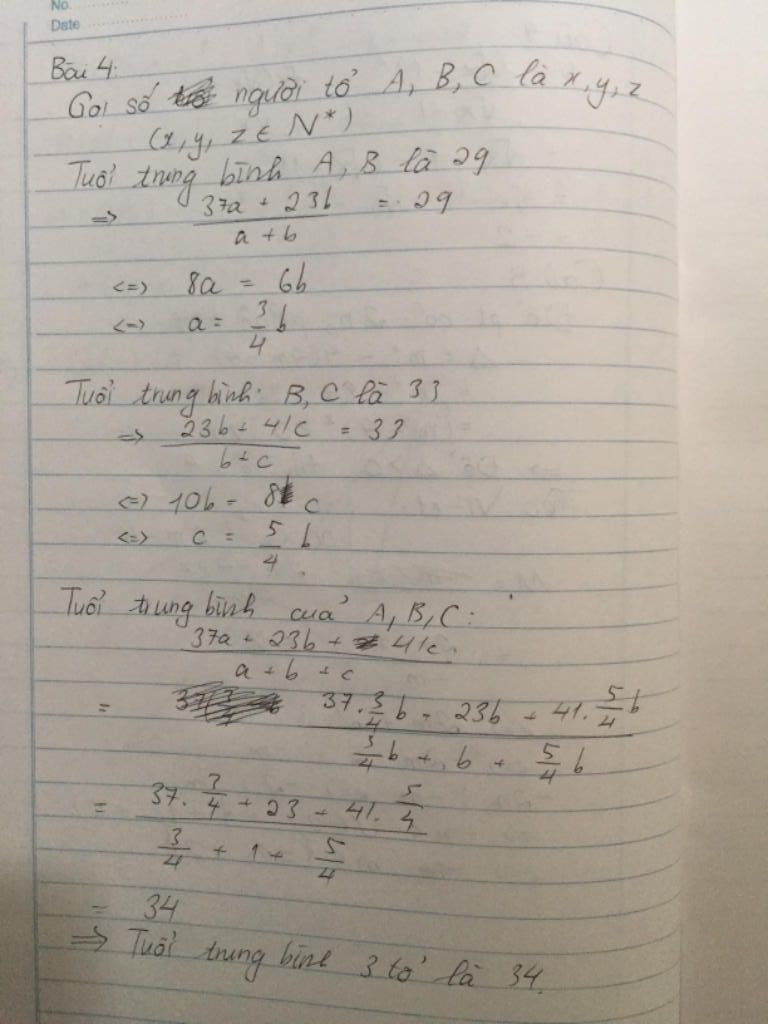 No.
Date
Bài 4:
Gọi số người tổ A, B, C là x, y, z
(x, y, z ∈ N*)
Tuổi trung bình A, B là 29
=> (37a + 23b)/(a + b) = 29
<=> 8a = 6b
<=> a = 3/4 b
Tuổi trung bình B, C là 33
=> (23b + 41c)/(b + c) = 33
<=> 10b = 8c
<=> c = 5/4 b
Tuổi trung bình của A, B, C:
(37a + 23b + 41c)/(a + b + c)
= (37. 3/4 b + 23b + 41. 5/4 b)/(3/4 b + b + 5/4 b)
= (37. 3/4 + 23 + 41. 5/4)/(3/4 + 1 + 5/4)
= 34
=> Tuổi trung bình 3 tổ là 34.